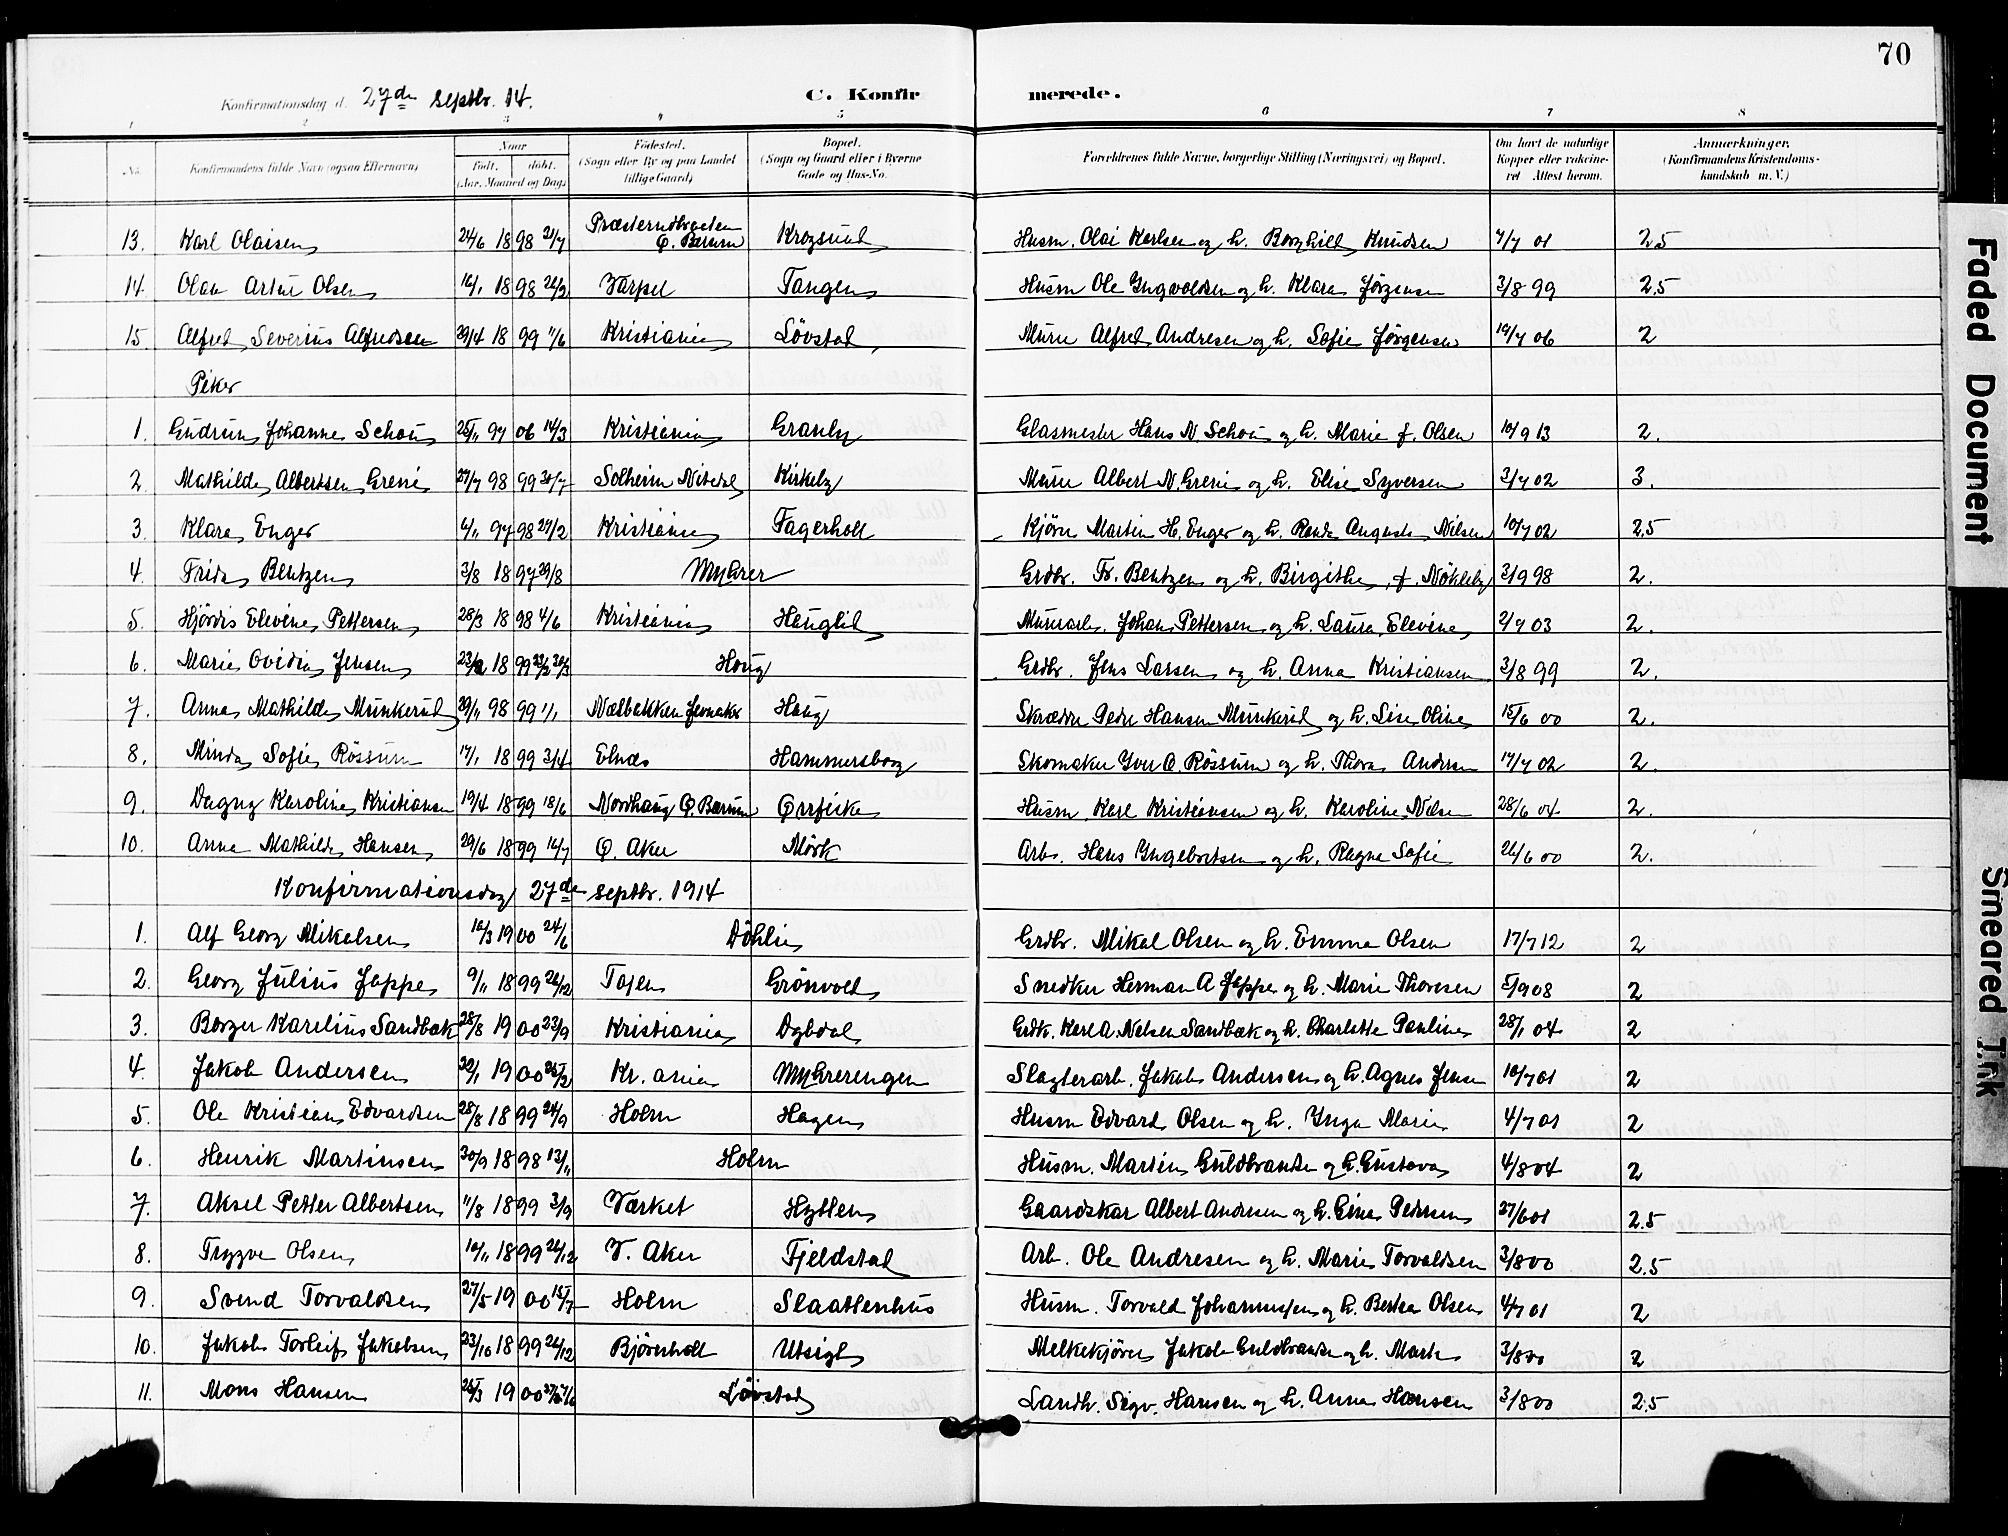 70
Konfirmationsdag d. 27de septbr. 14. C. Konfirmerede.
1 2 3 4 5 6 7 8
No. Konfirmandens fulde Navn (ogsaa Efternavn) Naar Født. døbt. (Aar, Maaned og Dag) Fødested. (Sogn eller By og paa Landet tillige Gaard) Bopæl. (Sogn og Gaard eller i Byerne Gade og Hus-No. Forældrenes fulde Navne, borgerlige Stilling (Næringsvei) og Bopæl. Om havt de naturlige Kopper eller vakcineret Attest herom. Anmærkninger. (Konfirmandens Kristendomskundskab m. V.)
13. Karl Olaisen 24/6 1898 21/7 Ø. Bærum Krogsund Husm. Olai Karlsen og h. Borghild Knudsen 7/7 01 2.5
14. Olav Artur Olsen 16/1 1898 Varpet Tangen Husm Ole Yngvoldsen og h. Klara Jørgensen 3/8 99 2.5
15. Alfred Severius Alfredsen 29/4 1899 11/6 Kristiania Løvstad Murer Alfred Andresen og h. Sofie Jørgensen 19/7 06 2
Piker
1. Gudrun Johanne Schou 25/11 97 06 14/3 Kristiania Granly Glasmester Hans N Schou og h. Marie f. Olsen 10/9 13 2.
2. Mathilde Albertsen Greni 27/7 98 99 30/7 Solheim Nitedal Kirkeby Murer Albert N. Greni og h. Elise Syversen 3/7 02 3.
3. Klara Enger 6/11 97 98 27/2 Kristiania Fagerholt Kjører Martin H. Enger og h. Randa Augusta Nilsen 10/7 02 2.5
4. Frida Bentzen 3/8 1897 29/8 Myhrer Grdbr. Fr. Bentzen og h. Birgithe f. Nökleby 3/9 98 2.
5. Hjördis Elevine Pettersen 28/3 1898 4/6 Kristiania Hauglid Murarb. Johan Pettersen og h. Laura Elevine 2/7 03 2.
6. Marie Ovidia Jensen 23/2 1899 Houg Grdbr. Jens Larsen og h. Anna Kristiansen 3/8 99 2.
7. Anna Mathilde Munkerud 29/11 98 99 1/1 Nælbakken Jevnaker Haug Skrædder Peder Hansen Munkerud og h. Lise Oline 15/6 00 2.
8. Minda Sofie Røssum 17/1 1899 3/4 Elnæs Hammersborg Skomaker Iver O. Røssum og h. Thora Andersen 17/7 02 2.
9. Dagny Karoline Kristiansen 19/4 1899 18/6 Nordhaug Ø. Bærum Ørrfiske Husm. Karl Kristiansen og h. Karoline Nilsen 28/6 04 2.
10. Anna Mathilde Hansen 29/6 1899 16/7 Ø. Aker Mörk Arb. Hans Yngebretsen og h. Ragna Sofie 26/6 00 2.
Konfirmationsdag 27de septbr. 1914
1. Alf Georg Mikalsen 16/3 1900 24/6 Döhlie Grdbr. Mikal Olsen og h. Emma Olsen 17/7 12 2
2. Georg Julius Jappe 9/11 1899 26/12 Tajen Grönvold Snedker Herman A Jappe og h. Marie Thoresen 5/9 08 2
3. Borger Karelius Sandbæk 28/8 1900 23/9 Kristiania Dybdal Grdbr. Karl A. Nelsen Sandbæk og h. Charlotte Pauline 28/1 04 2
4. Jakob Andersen 22/1 1900 25/2 Kr. ania Myhrerengen Slagterarb. Jakob Andersen og h. Agnes Jensen 10/7 01 2
5. Ole Kristian Edvardsen 28/8 1899 24/9 Holm Hagen Husm Edvard Olsen og h. Inga Marie 4/7 01 2
6. Henrik Martinsen 30/9 1898 13/11 Holm Husm. Martin Guldbrandsen og h. Gustava 4/8 04 2
7. Aksel Petter Albertsen 11/8 1899 3/9 Værket Hytten Gaardskar Albert Andersen og h. Gina Pedersen 27/6 01 2.5
8. Trygve Olsen 10/11 1899 26/12 V. Aker Fjeldstad Arb. Ole Andresen og h. Marie Torvaldsen 3/8 00 2.5
9. Svend Torvaldsen 27/5 1900 15/7 Holm Slaattenhus Husm. Torvald Johannessen og h. Bertea Olsen 4/7 01 2
10. Jakob Torleif Jakobsen 23/10 1899 26/12 Bjørnholt Utsigt Melkekjører Jakob Guldbrandsen og h. Marte 3/8 00 2
11. Mons Hansen 25/3 1900 Løvstad Landh. Sigv. Hansen og h. Anna Hansen 3/8 00 2.5
Faded Document
Smeared Ink